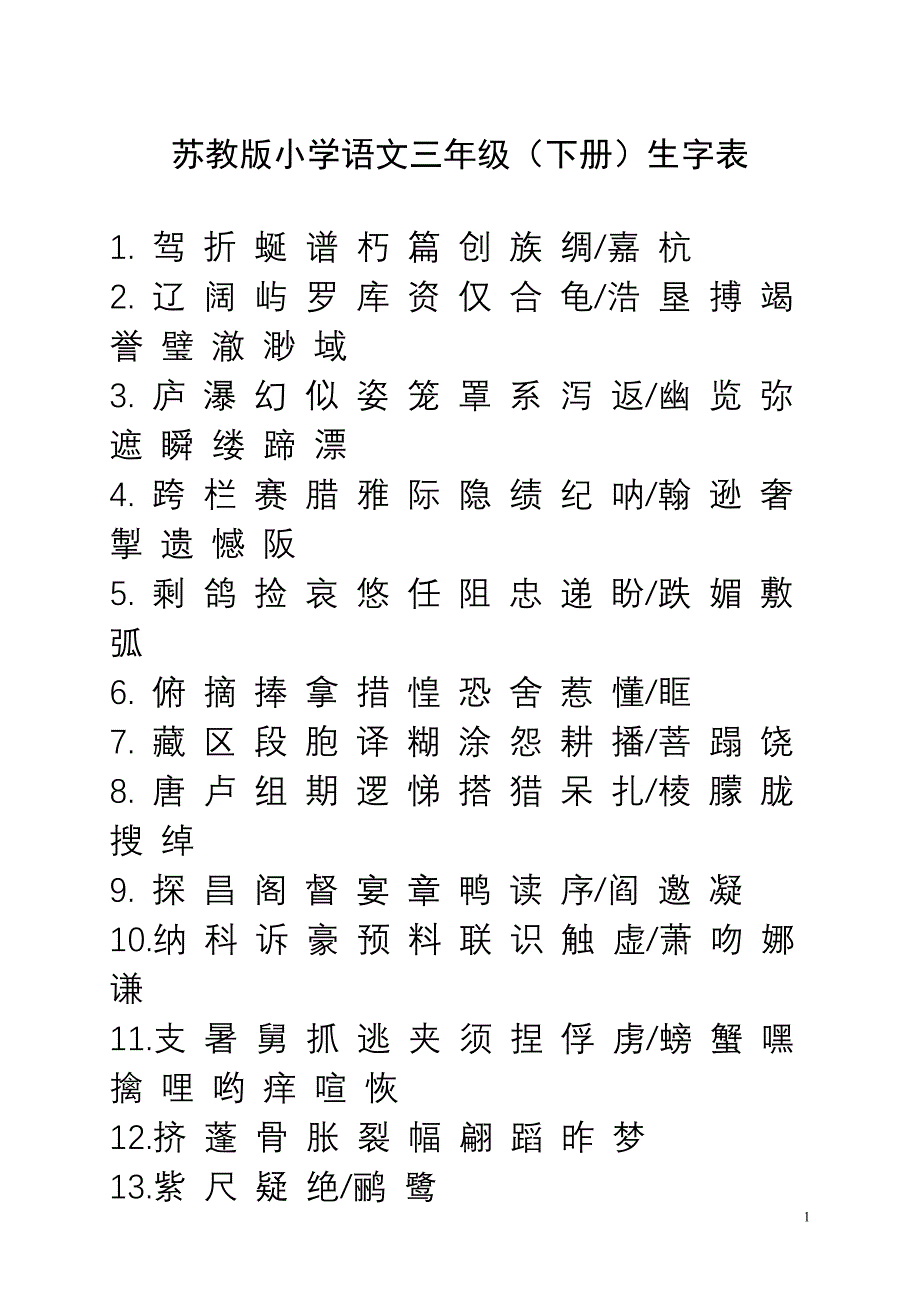 苏教版小学语文三年级（下册）生字表
1. 驾 折 蜒 谱 朽 篇 创 族 绸/嘉 杭
2. 辽 阔 屿 罗 库 资 仅 合 龟/浩 垦 搏 竭
誉 璧 澈 渺 域
3. 庐 瀑 幻 似 姿 笼 罩 系 泻 返/幽 览 弥
遮 瞬 缕 蹄 漂
4. 跨 栏 赛 腊 雅 际 隐 绩 纪 呐/翰 逊 奢
掣 遗 憾 阪
5. 剩 鸽 捡 哀 悠 任 阻 忠 递 盼/跌 媚 敷
弧
6. 俯 摘 捧 拿 措 惶 恐 舍 惹 懂/眶
7. 藏 区 段 胞 译 糊 涂 怨 耕 播/菩 蹋 饶
8. 唐 卢 组 期 逻 悌 搭 猎 呆 扎/棱 朦 胧
搜 绰
9. 探 昌 阁 督 宴 章 鸭 读 序/阎 邀 凝
10.纳 科 诉 豪 预 料 联 识 触 虚/萧 吻 娜
谦
11.支 暑 舅 抓 逃 夹 须 捏 俘 虏/螃 蟹 嘿
擒 哩 哟 痒 喧 恢
12.挤 蓬 骨 胀 裂 幅 翩 蹈 昨 梦
13.紫 尺 疑 绝/鹂 鹭
1